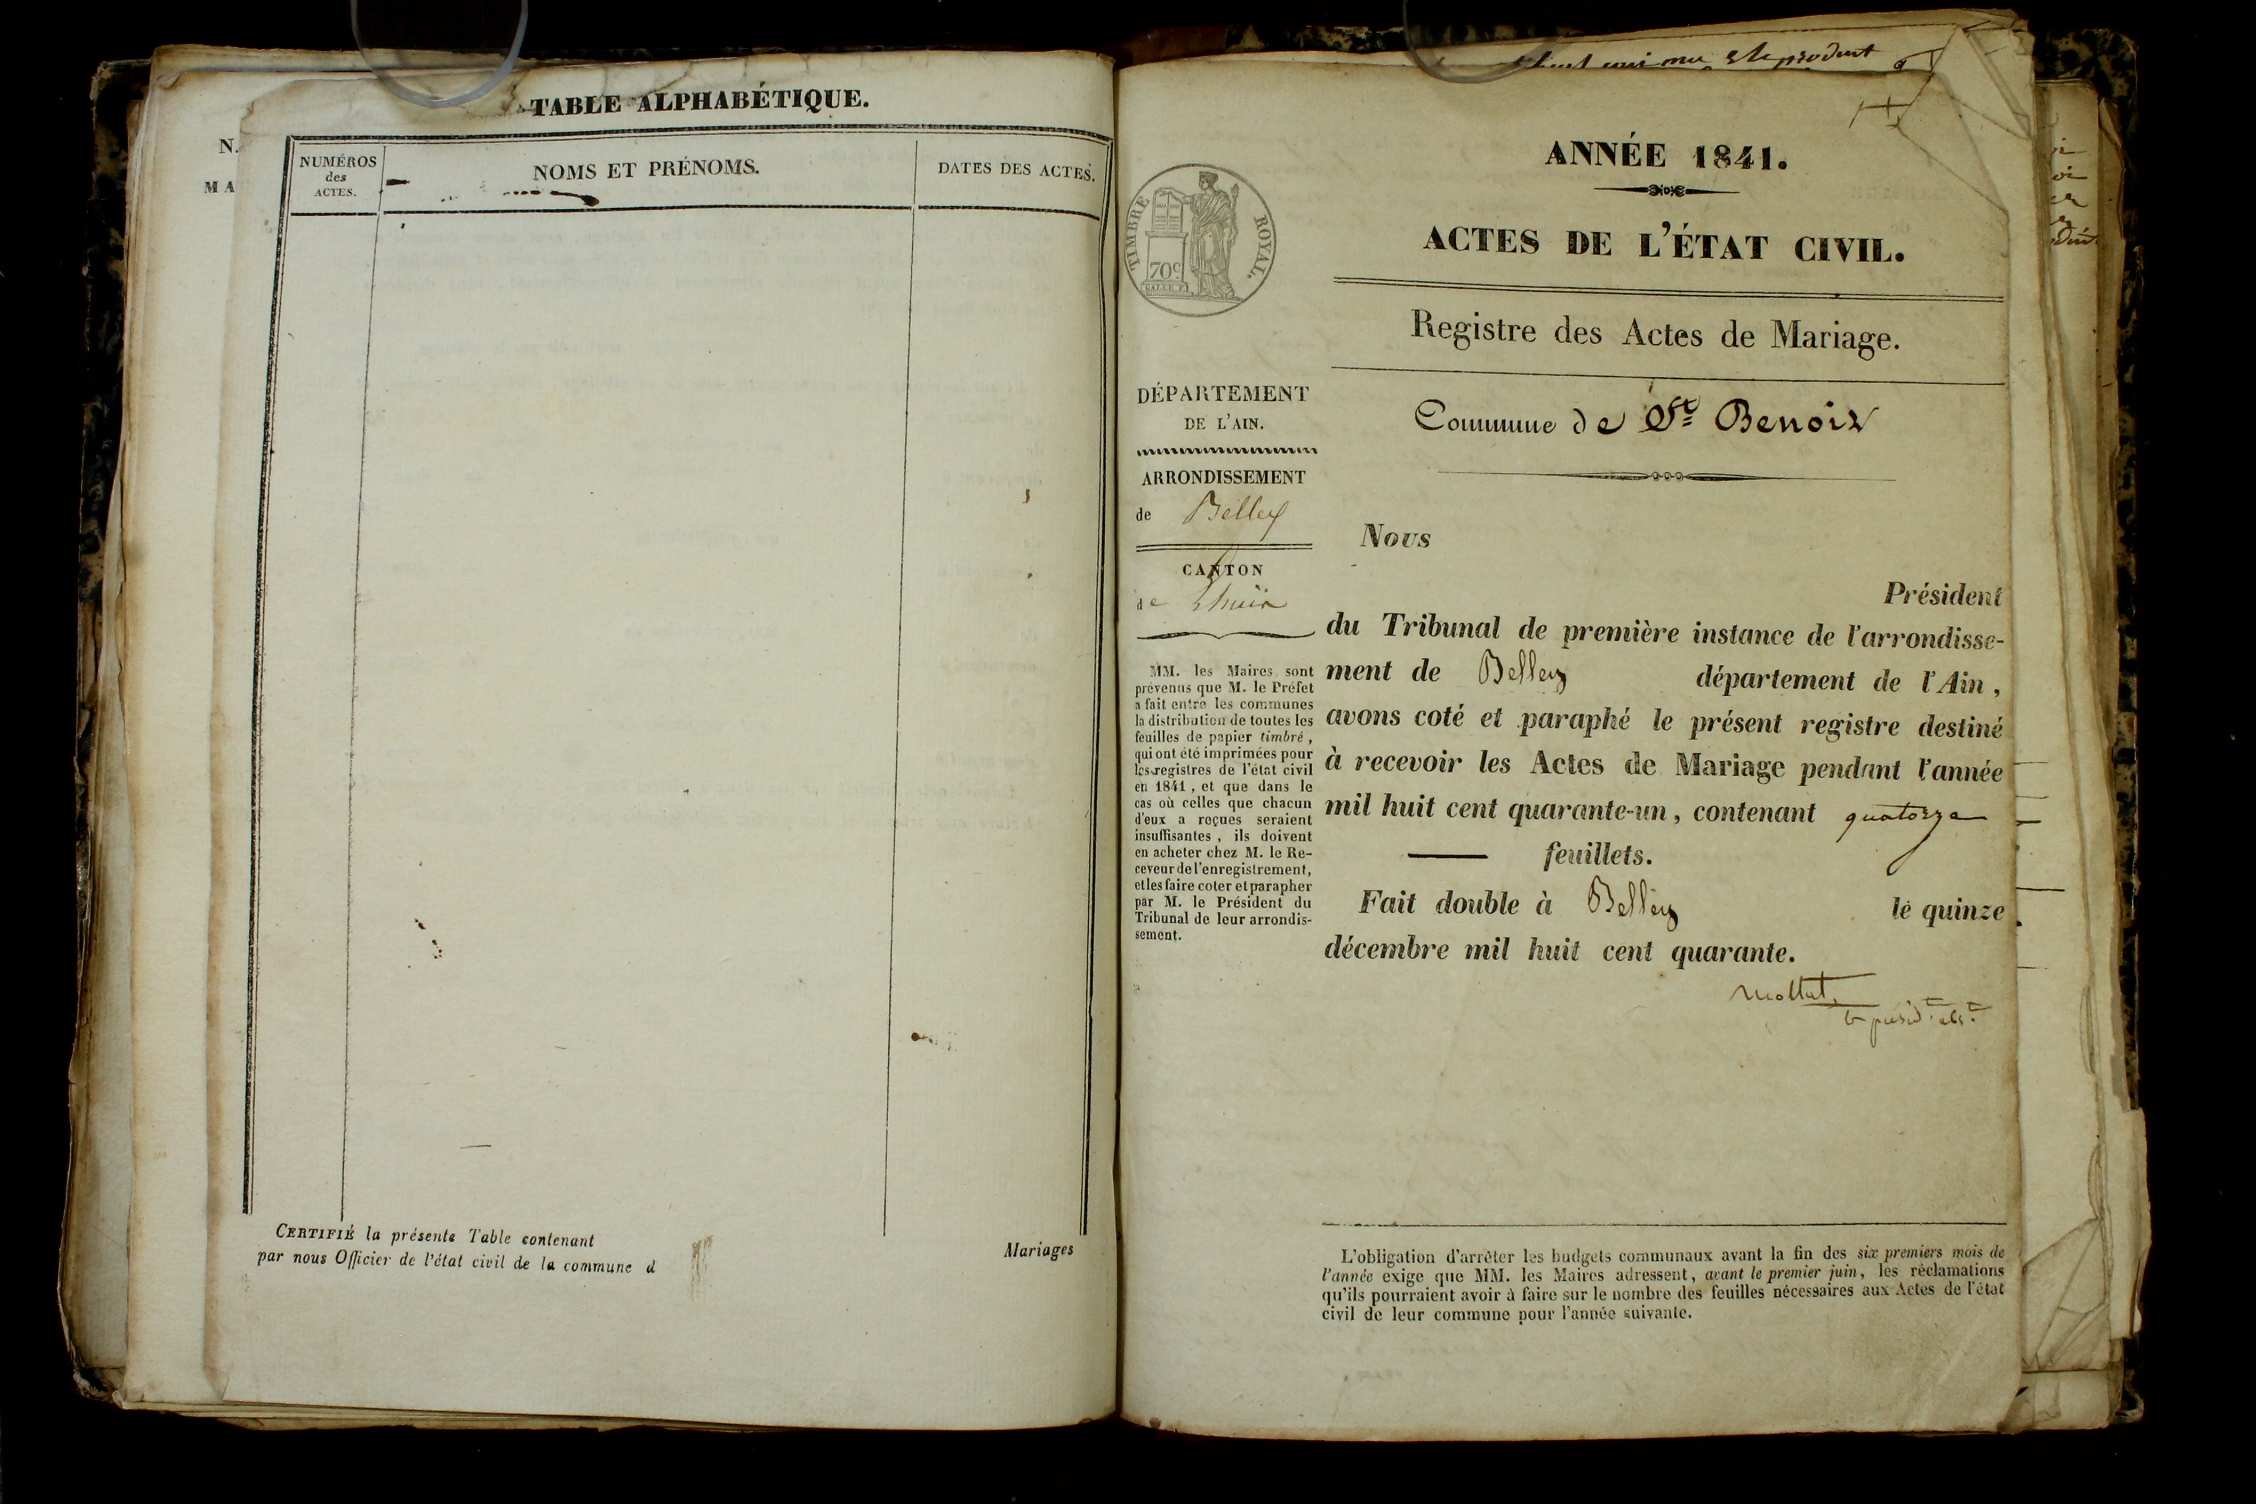 TABLE ALPHABÉTIQUE.
N.
MA
NUMÉROS
des
ACTES.
NOMS ET PRÉNOMS.
DATES DES ACTES.
CERTIFIÉ la présente Table contenant
Mariages
par nous Officier de l'état civil de la commune d
produit
ANNÉE 1841.
ACTES DE L'ÉTAT CIVIL.
TIMBRE ROYAL.
70c
Registre des Actes de Mariage.
Commune de St Benoit
DÉPARTEMENT
DE L'AIN.
ARRONDISSEMENT
de Belley
CANTON
de Lhuis
MM. les Maires sont
prévenus que M. le Préfet
a fait entre les communes
la distribution de toutes les
feuilles de papier timbré,
qui ont été imprimées pour
les registres de l'état civil
en 1841, et que dans le
cas où celles que chacun
d'eux a reçues seraient
insuffisantes, ils doivent
en acheter chez M. le Re-
ceveur de l'enregistrement,
et les faire coter et parapher
par M. le Président du
Tribunal de leur arrondis-
sement.
Nous
Président
du Tribunal de première instance de l'arrondisse-
ment de Belley département de l'Ain,
avons coté et paraphé le présent registre destiné
à recevoir les Actes de Mariage pendant l'année
mil huit cent quarante-un, contenant quatorze
feuillets.
Fait double à Belley le quinze
décembre mil huit cent quarante.
L'obligation d'arrêter les budgets communaux avant la fin des six premiers mois de
l'année exige que MM. les Maires adressent, avant le premier juin, les réclamations
qu'ils pourraient avoir à faire sur le nombre des feuilles nécessaires aux Actes de l'état
civil de leur commune pour l'année suivante.